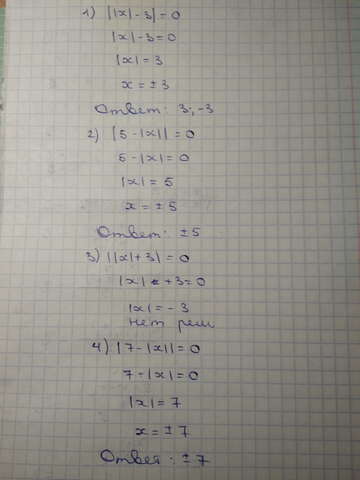 1) ||x| - 3| = 0
|x| - 3 = 0
|x| = 3
x = ± 3
Ответ: 3; -3
2) |5 - |x|| = 0
5 - |x| = 0
|x| = 5
x = ± 5
Ответ: ± 5
3) ||x| + 3| = 0
|x| + 3 = 0
|x| = - 3
нет реш
4) |7 - |x|| = 0
7 - |x| = 0
|x| = 7
x = ± 7
Ответ: ± 7